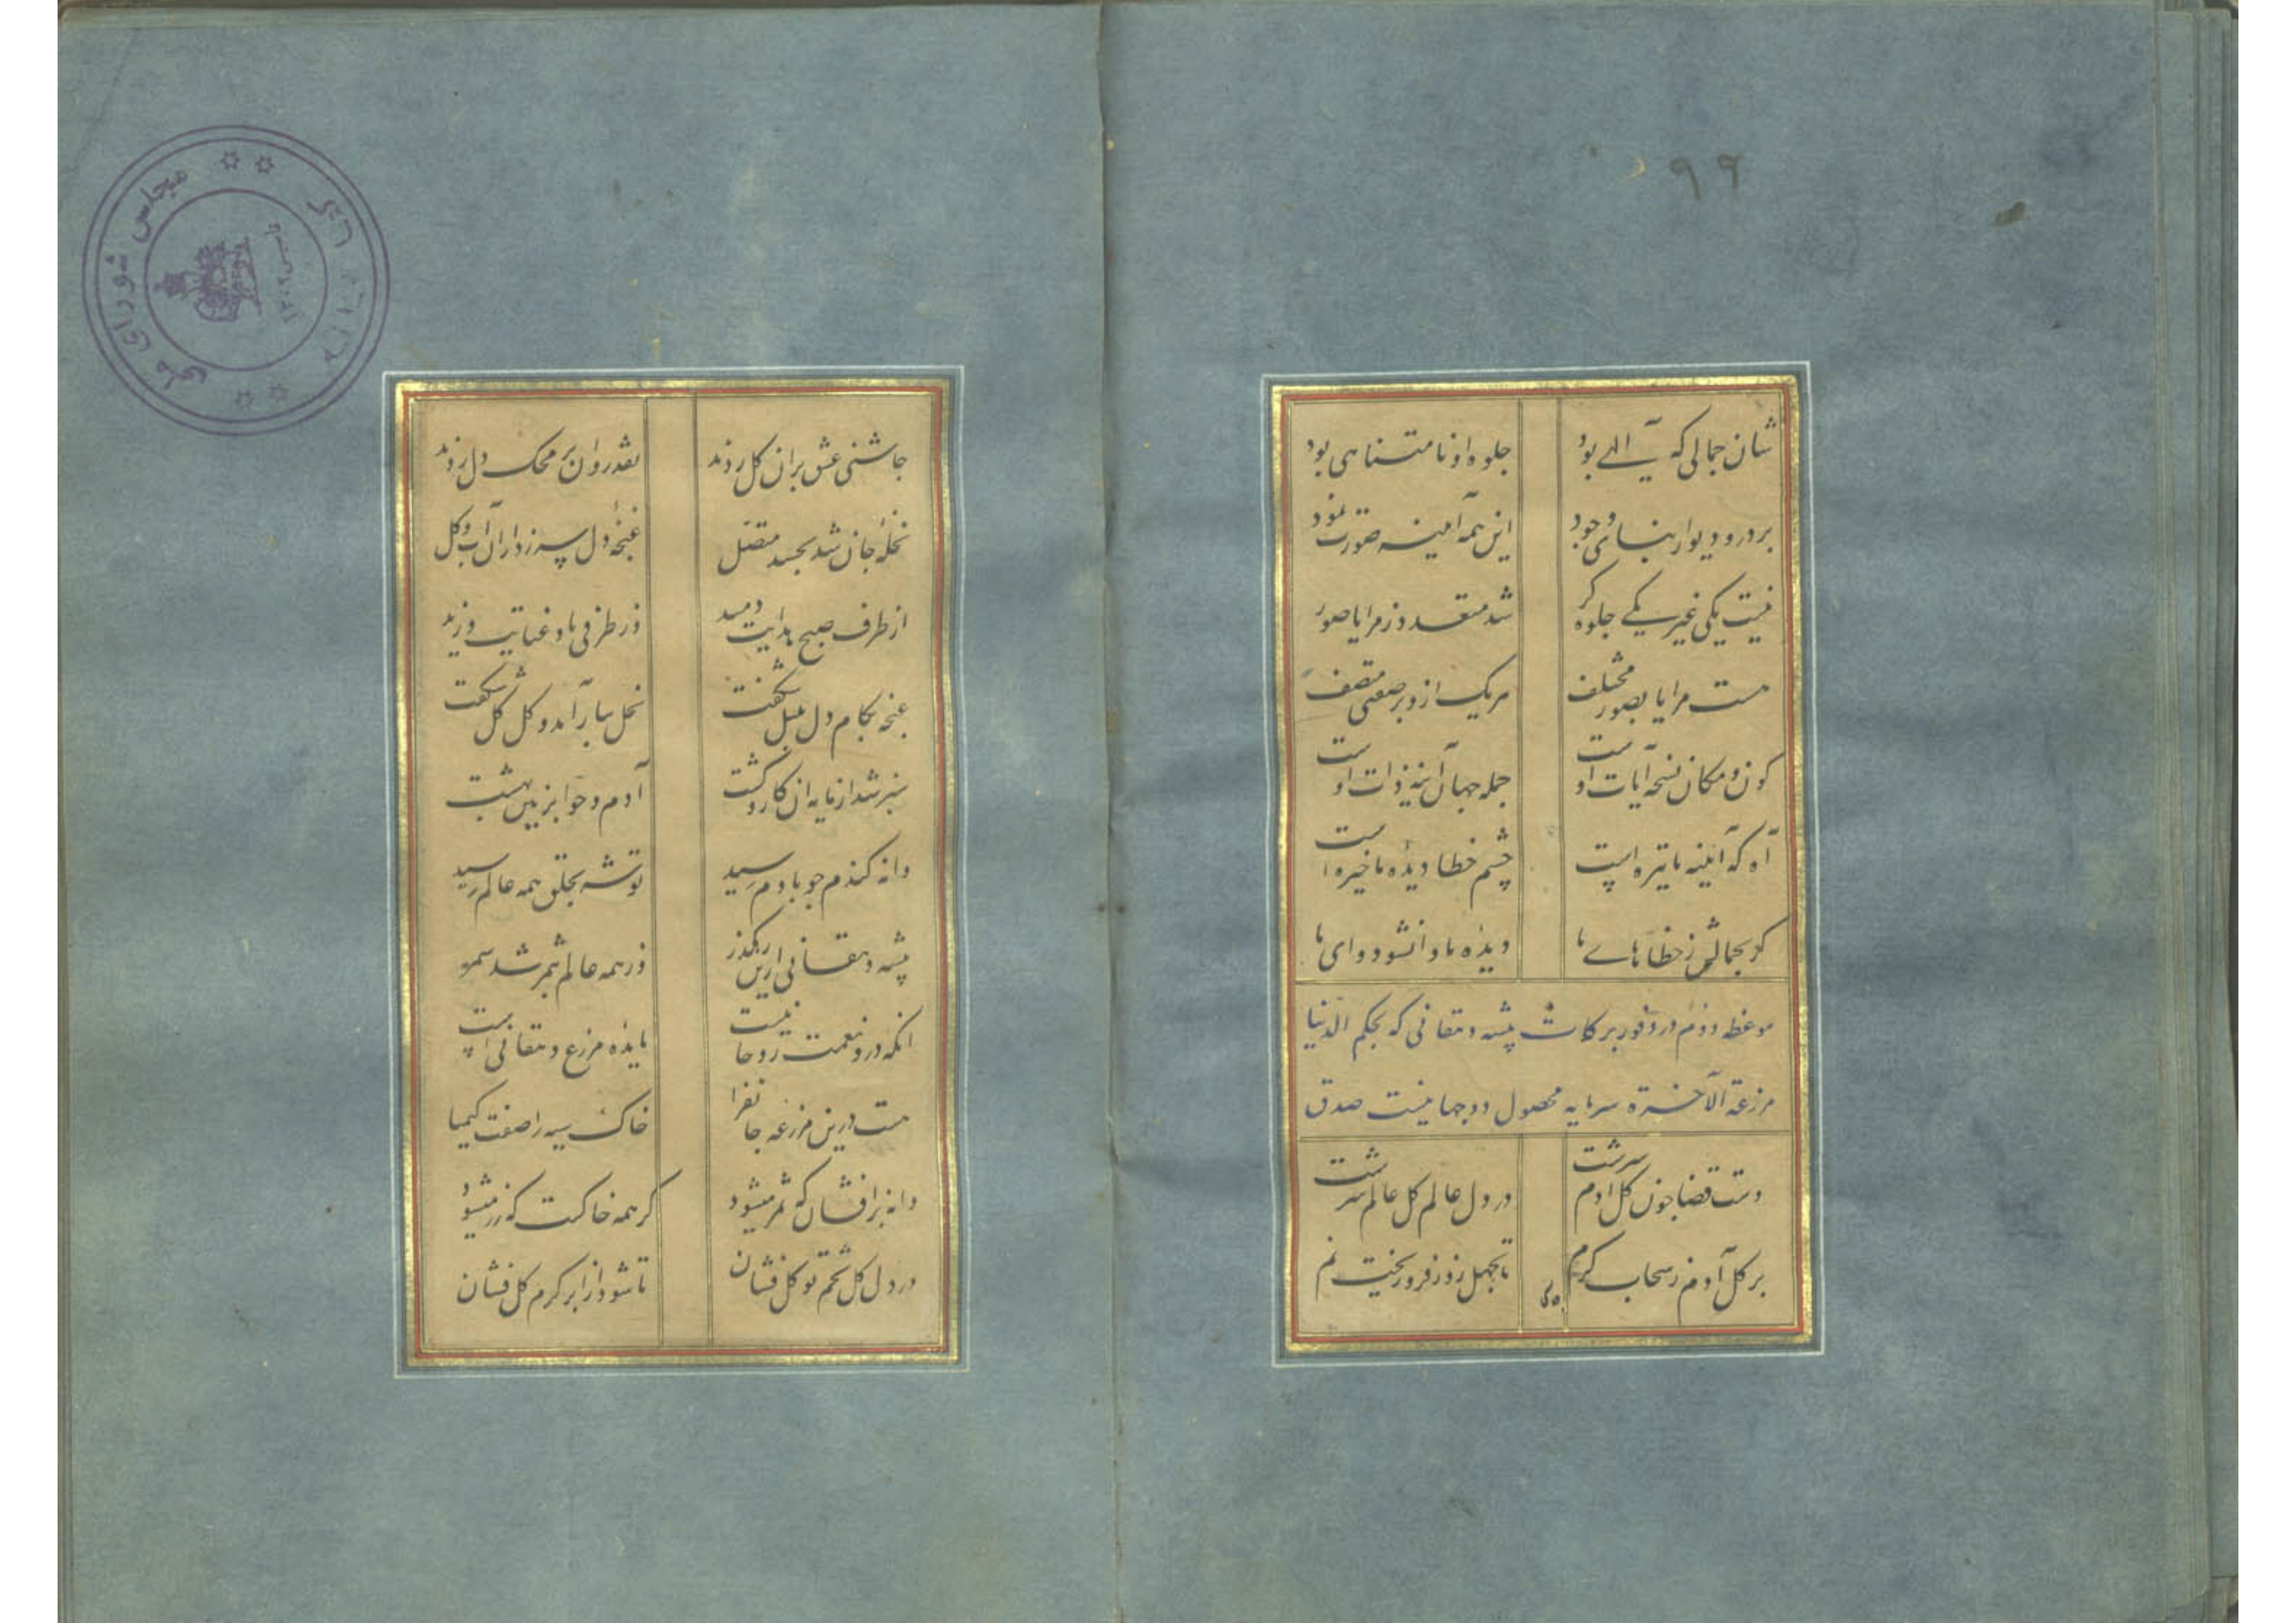 ۹۹
شان جمالی که آلهی بود جلوه او نامتناهی بود
بر در و دیوار بنای وجود این همه آئینه صورت نمود
نیست یکی غیر یکی جلوه گر شد متعدد ز مرایا صور
هست مرایا بصور مختلف هر یک ازو بر صفتی متصف
کون و مکان نسخه آیات اوست جمله جهان آینه ذات اوست
آه که آئینه ما تیره است چشم خطا دیده ما خیره است
گر بجمالش ز خطاهای ما دیده ما وا نشود وای ما
موعظه دوم در وفور برکات پیشه دهقانی که بحکم الدنیا
مزرعة الآخرة سرمایه محصول دوجهانیست صدق
دست قضا چون گل آدم سرشت در دل عالم گل عالم سرشت
بر گل آدم ز سحاب کرم تا بچهل روز فرو ریخت نم
چاشنی عشق بران گل زدند نقد روان بر محک دل زدند
نخله جان شد بجسد متصل غنچه دل سر زد ازان آب و گل
از طرف صبح هدایت دمید وز طرفی باد عنایت وزید
غنچه بکام دل بلبل شکفت نخل ببار آمد و گل گل شکفت
سبز شد از مایه ان کار و کشت آدم و حوا بزمین بهشت
دانه گندم چو بادم رسید توشه بخلق همه عالم رسید
پیشه دهقانی ازین رهگذر در همه عالم بثمر شد سمر
انکه درو نعمت روحانیست مایده مزرع دهقانی است
هست درین مزرعه جانفزا خاک سیه را صفت کیمیا
دانه برافشان که ثمر میشود گر همه خاکست که زر میشود
در دل گل تخم توکل فشان تا شود از ابر کرم گل فشان
مجلس شورای ملی